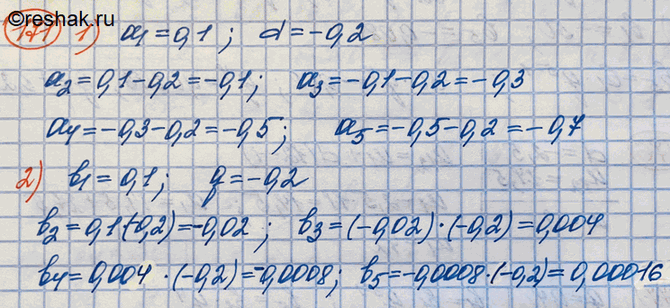 ©reshak.ru
171 1) a₁=0,1; d=-0,2
a₂=0,1-0,2=-0,1; a₃=-0,1-0,2=-0,3
a₄=-0,3-0,2=-0,5; a₅=-0,5-0,2=-0,7
2) b₁=0,1; q=-0,2
b₂=0,1·(-0,2)=-0,02; b₃=(-0,02)·(-0,2)=0,004
b₄=0,004·(-0,2)=-0,0008; b₅=-0,0008·(-0,2)=0,00016